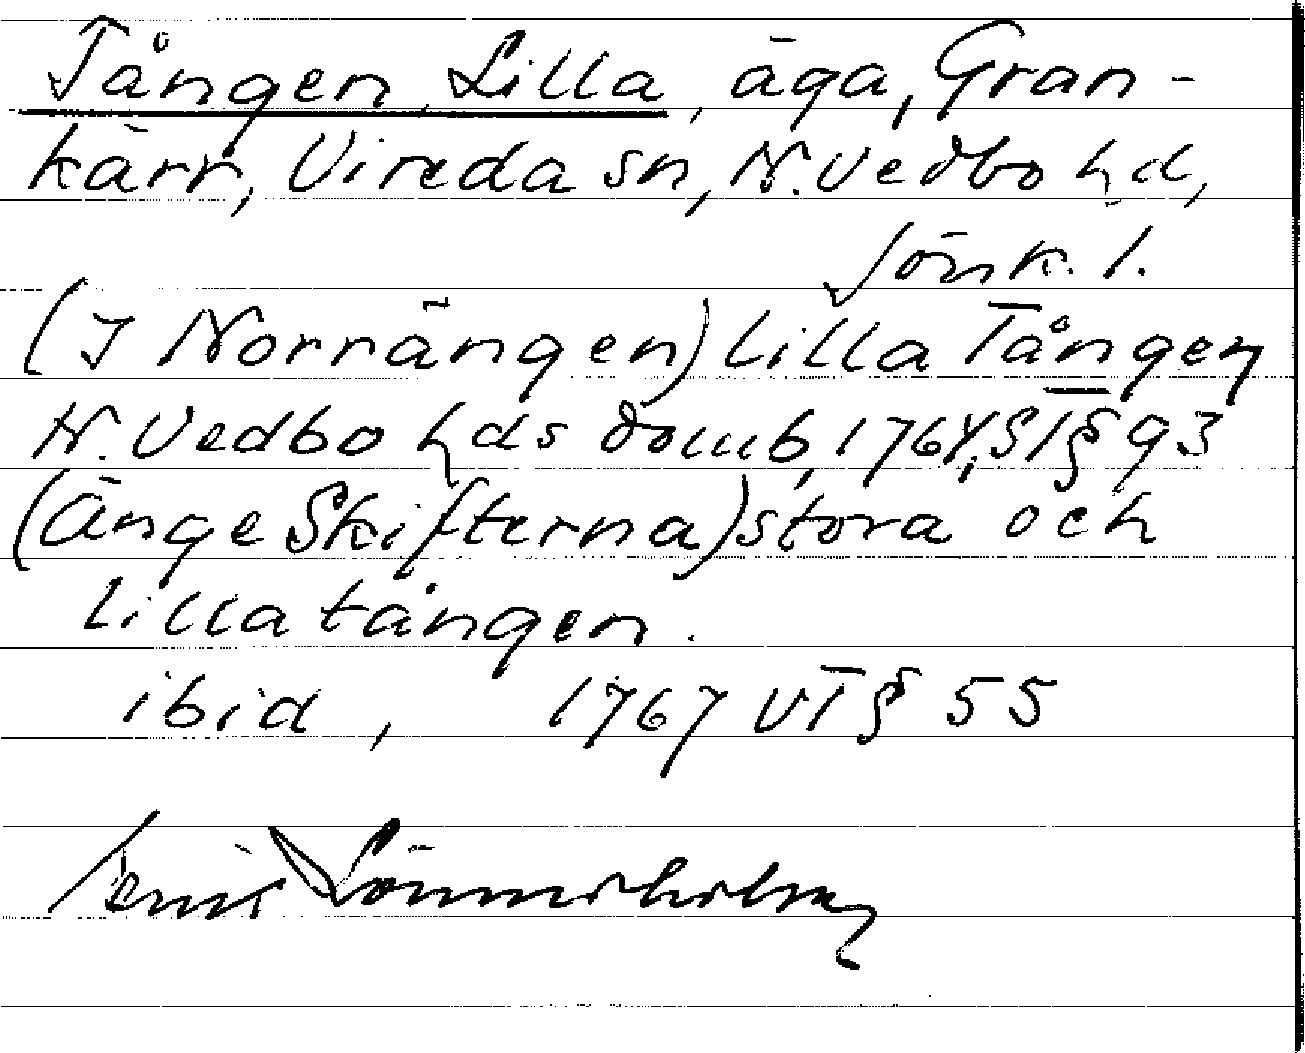 Tången, Lilla, äga, Gran-
kärr, Vireda sn, N. Vedbo hd,
Jönk. l.
(I Norrängen) Lilla Tången
N. Vedbo hds domb, 1764, § I § 93
(Änge Skifterna) stora och
lilla tången.
ibid, 1767 VI § 55
Lönnerholm